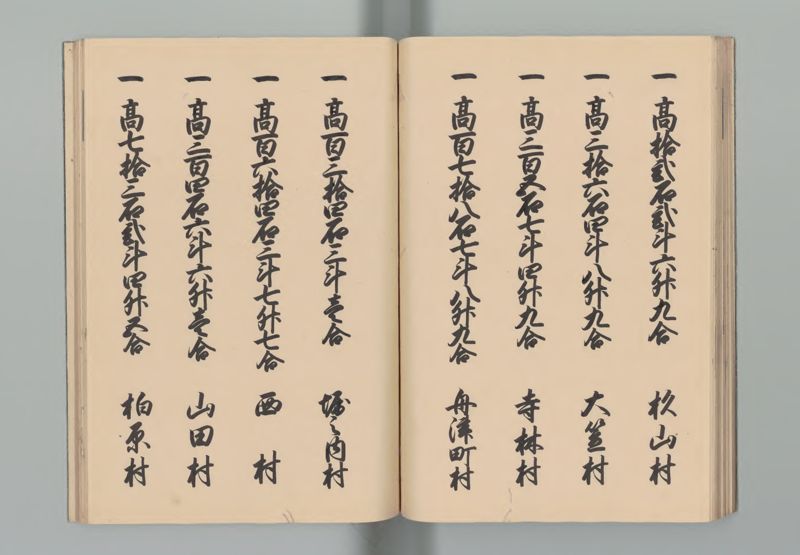 一 高拾弐石弐斗六升九合 杉山村
一 高三拾六石四斗八升九合 大笠村
一 高三百又石七斗四升九合 寺林村
一 高百七拾八石七斗八升九合 舟津町村
一 高百三拾四石三斗壱合 堀之内村
一 高百六拾四石三斗七升七合 西村
一 高三百四石六斗六升壱合 山田村
一 高七拾三石弐斗四升五合 柏原村